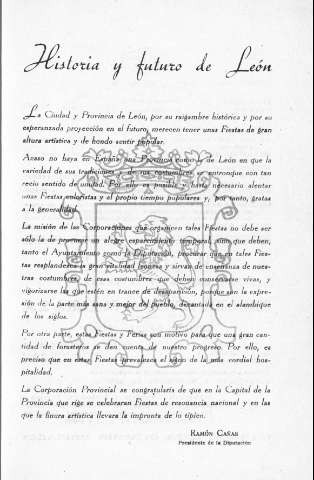 Historia y futuro de León
La Ciudad y Provincia de León, por su raigambre histórica y por su
esperanzada proyección en el futuro, merecen tener unas Fiestas de gran
altura artística y de hondo sentir popular.
Acaso no haya en España una Provincia como la de León en que la
variedad de sus tradiciones y de sus costumbres se entronque con tan
recio sentido de unidad. Por ello es posible y hasta necesario alentar
unas Fiestas coloristas y al propio tiempo populares y, por tanto, gratas
a la generalidad.
La misión de las Corporaciones que organicen tales Fiestas no debe ser
sólo la de procurar un alegre esparcimiento temporal, sino que deben,
tanto el Ayuntamiento como la Diputación, procurar que en tales Fies-
tas resplandezca la gran vitalidad leonesa y sirvan de enseñanza de nues-
tras costumbres, de esas costumbres que deben conservarse vivas, y
vigorizarse las que estén en trance de desaparición, porque son la expre-
sión de la parte más sana y mejor del pueblo, decantada en el alambique
de los siglos.
Por otra parte, estas Fiestas y Ferias son motivo para que una gran can-
tidad de forasteros se den cuenta de nuestro progreso. Por ello, es
preciso que en estas Fiestas prevalezca el signo de la más cordial hos-
pitalidad.
La Corporación Provincial se congratularía de que en la Capital de la
Provincia que rige se celebraran Fiestas de resonancia nacional y en las
que la finura artística llevara la impronta de lo típico.
Ramón Cañas
Presidente de la Diputación